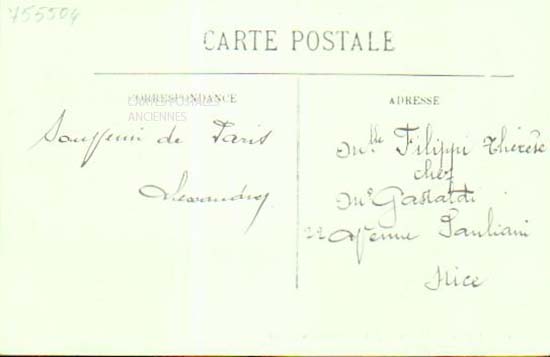 755504
CARTE POSTALE
CORRESPONDANCE
CARTES POSTALES
ANCIENNES
Souvenir de Paris
ADRESSE
Mlle Filippi Thérèse
chez
Me Gastaldi
22 Avenue Pauliani
Nice